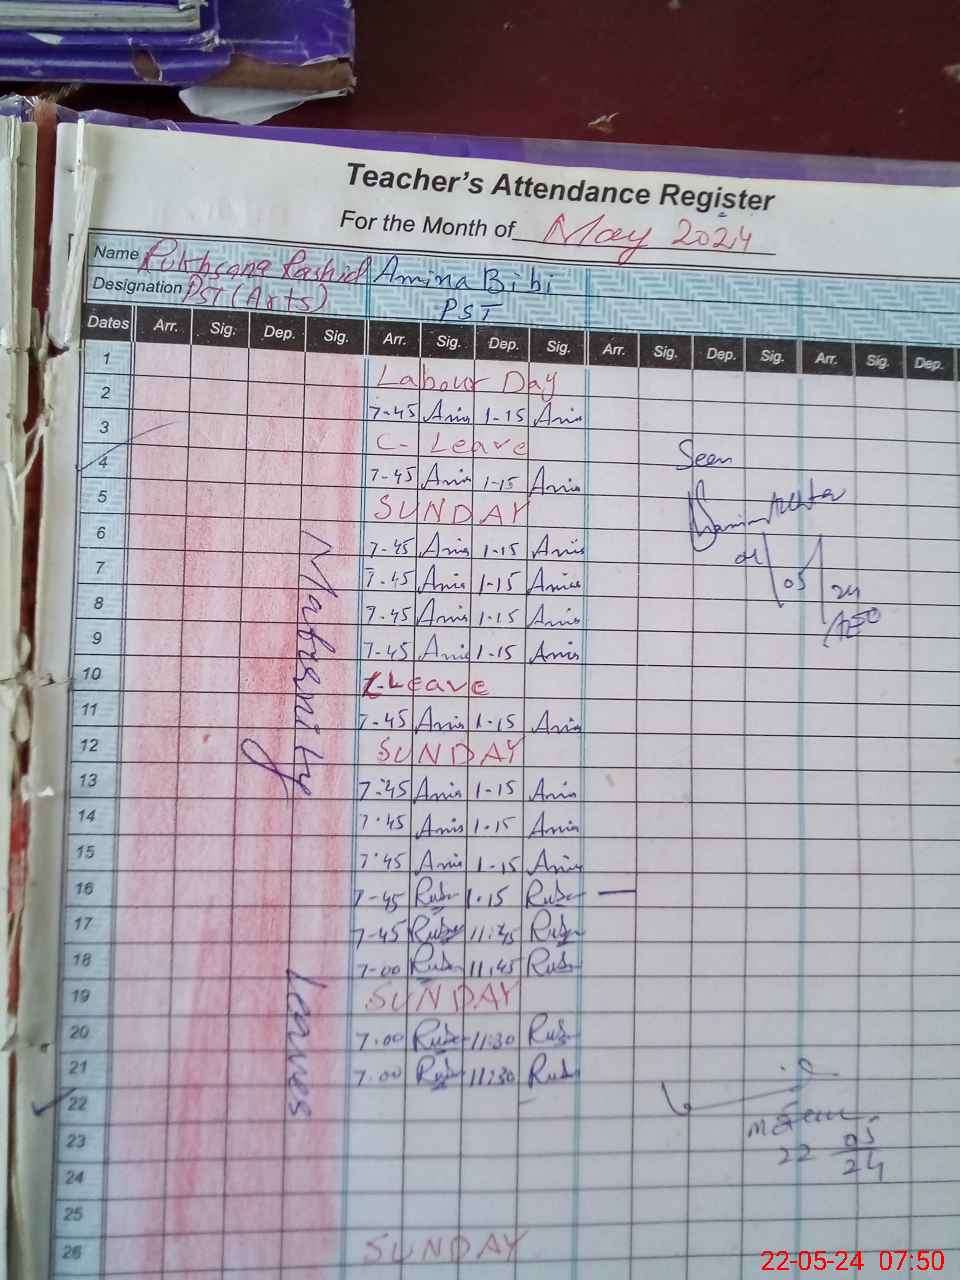 Teacher's Attendance Register
For the Month of May 2024
Name Rukhsana Rashid Amina Bibi
Designation PST (Arts) PST
Dates Arr. Sig. Dep. Sig. Arr. Sig. Dep. Sig. Arr. Sig. Dep. Sig. Arr. Sig. Dep.
1 Labour Day
2 7-45 1-15
3 C- Leave
4 7-45 1-15
Seen
5 SUNDAY
6 7-45 1-15
04 05 24
AEO
7 7-45 1-15
8 7-45 1-15
9 7-45 1-15
10 C-Leave
11 7-45 1-15
12 SUNDAY
13 7-45 1-15
14 7.45 1.15
15 7.45 1-15
16 7-45 1.15
17 7-45 11:45
18 7-00 11.45
19 SUNDAY
20 7.00 11:30
21 7.00 11:30
22
23
22 05 24
24
25
26 SUNDAY
Maternity Leaves
22-05-24 07:50